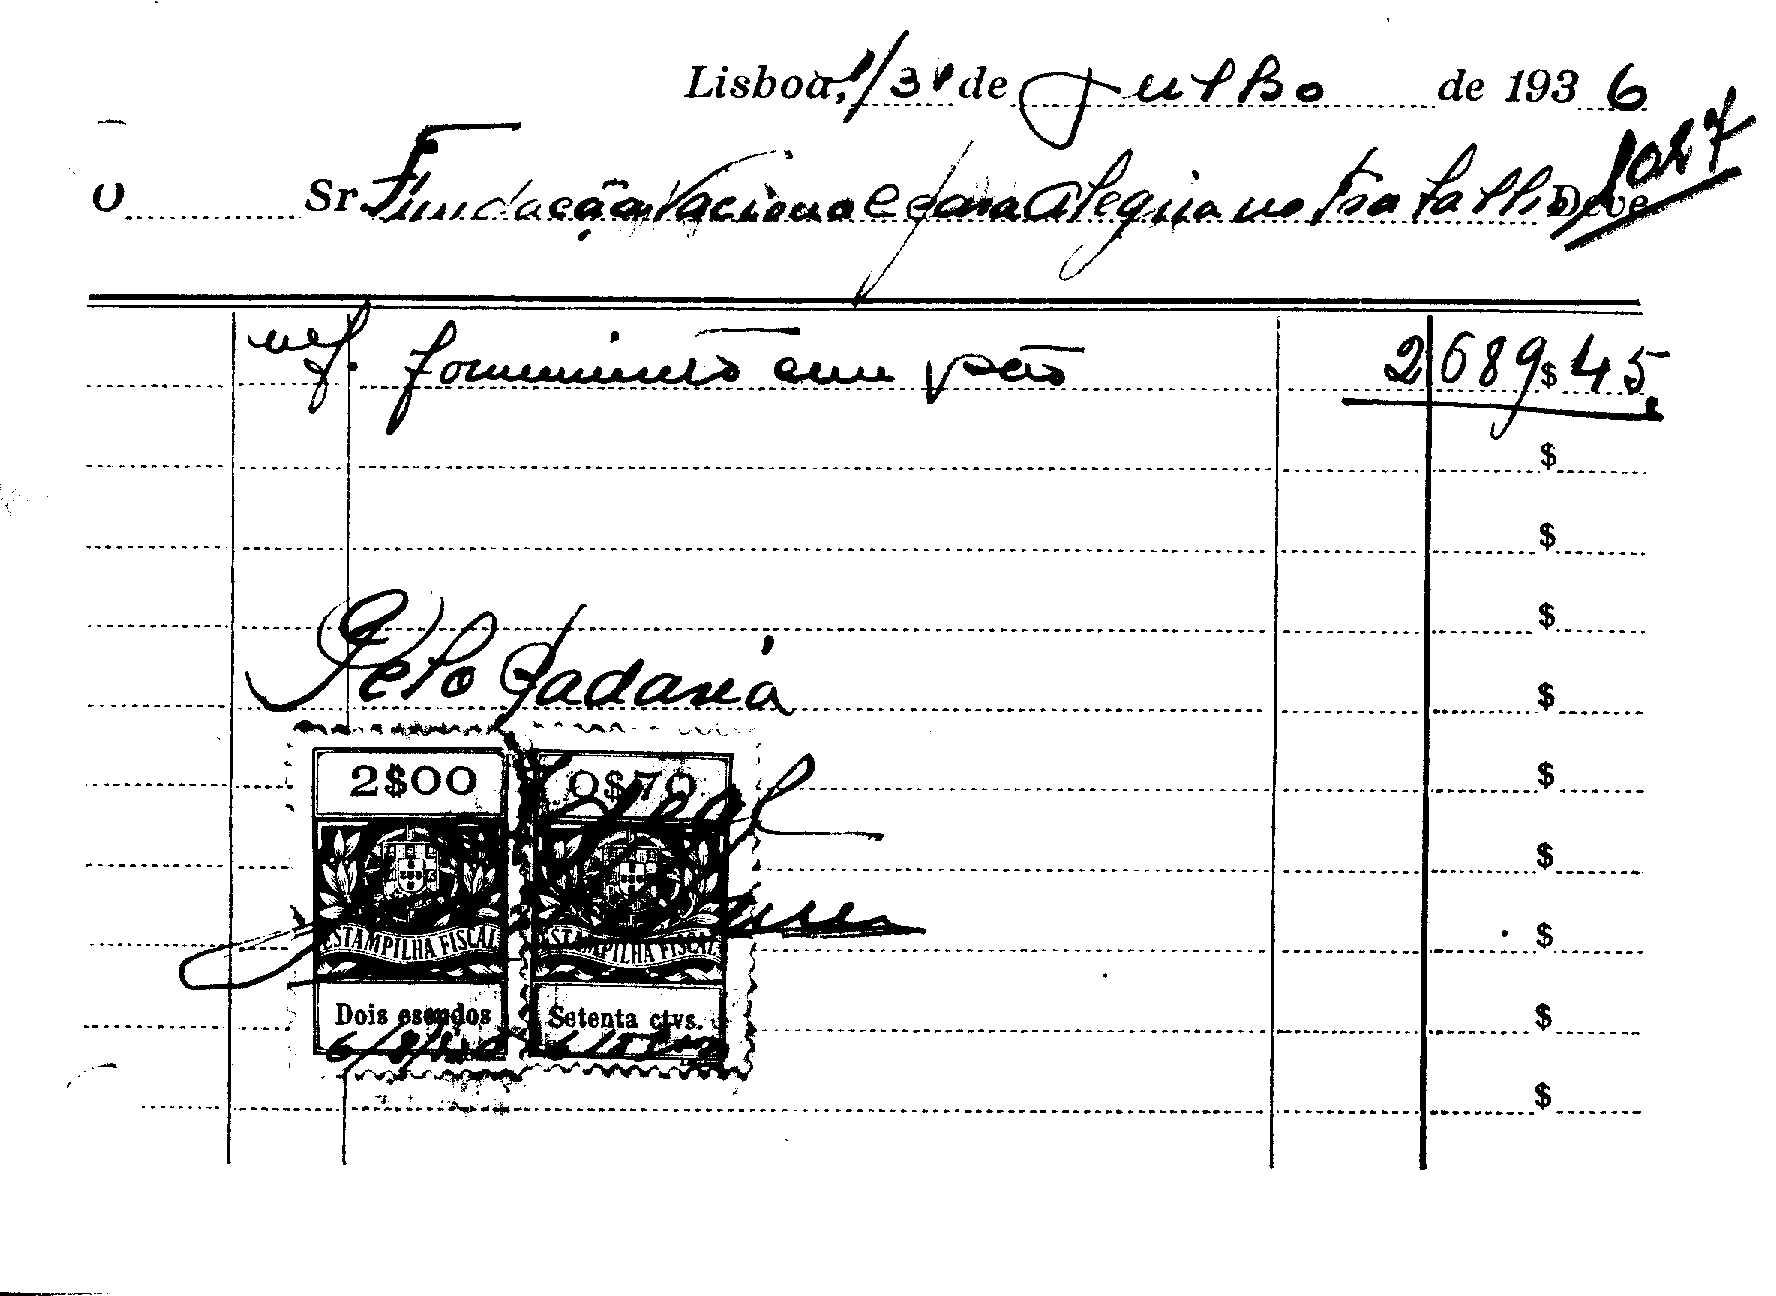 Lisboa, 1/31 de Julho de 1936
1027
O Sr. Fundação Nacional para Alegria no Trabalho Deve
fornecimento em pão 2689$45
$
$
$
Pelo Padaria
$
2$00 0$70
$
$
ESTAMPILHA FISCAL ESTAMPILHA FISCAL
$
Dois escudos Setenta ctvs.
$
6/8/36
$